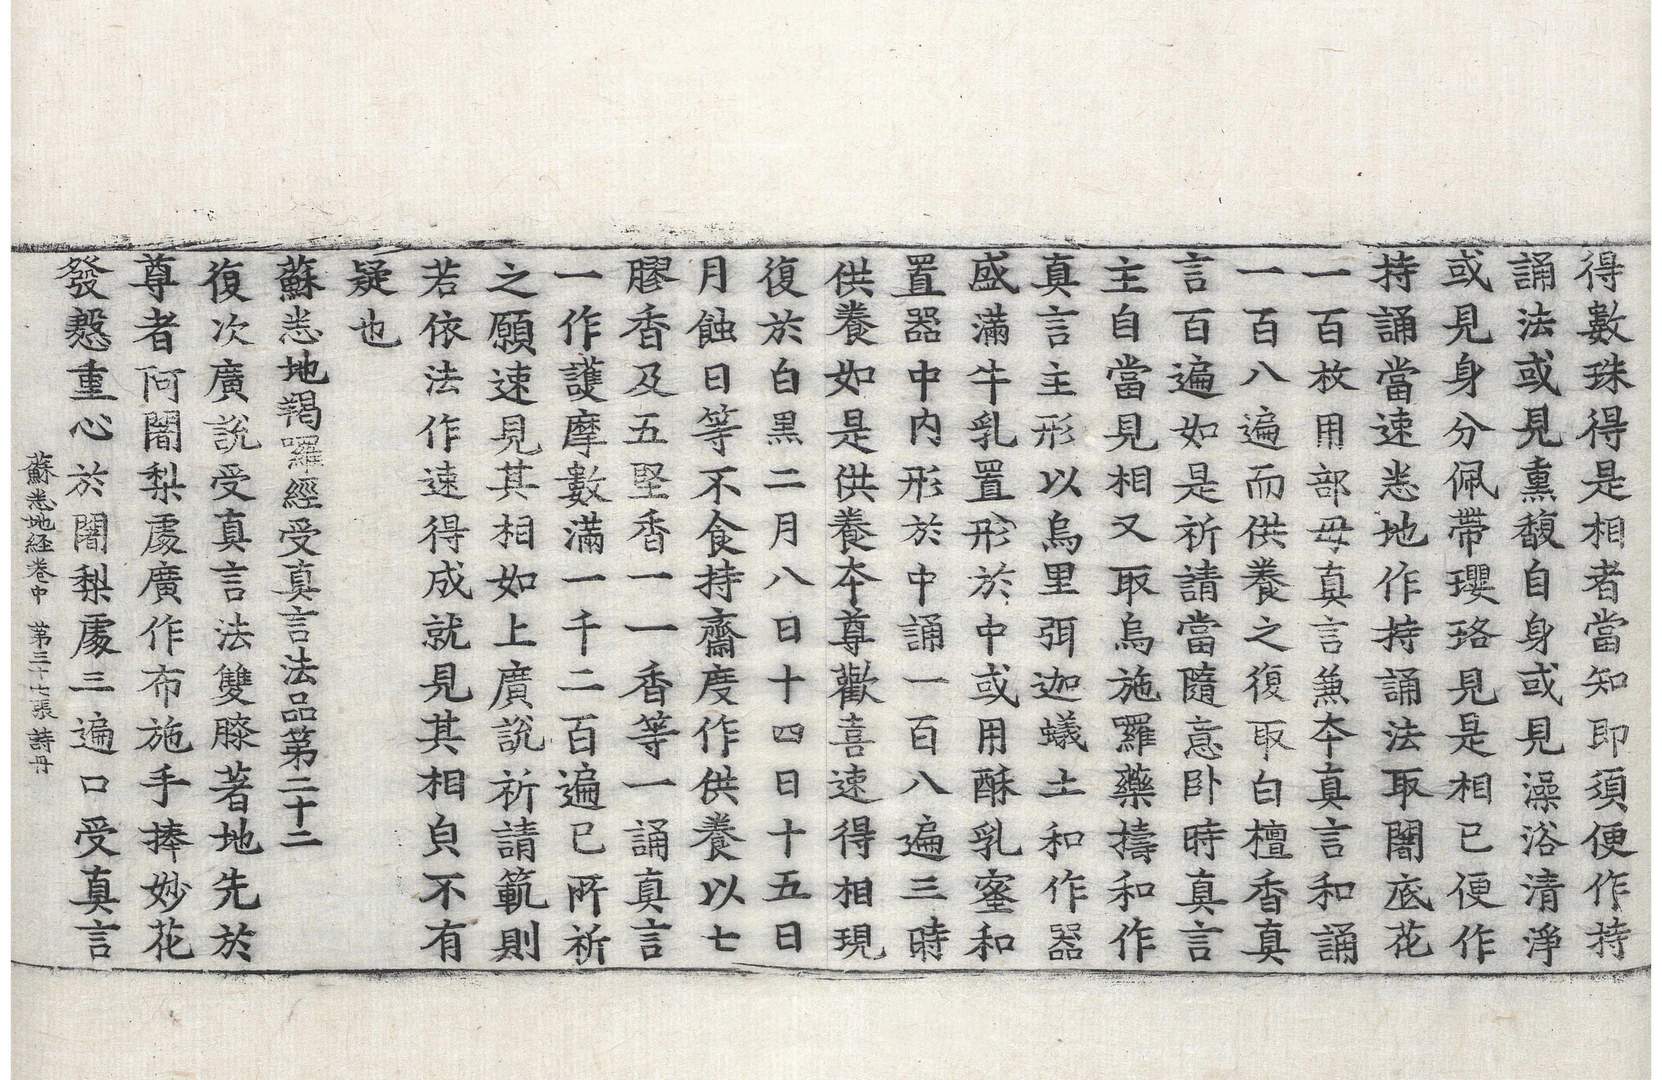 得數珠得是相者當知即須便作持
誦法或見熏馥自身或見澡浴清淨
或見身分佩帶瓔珞見是相已便作
持誦當速悉地作持誦法取闍底花
一百枚用部母真言兼夲真言和誦
一百八遍而供養之復取白檀香真
言百遍如是祈請當隨意卧時真言
主自當見相又取烏施羅藥擣和作
真言主形以烏里弭迦蟻土和作器
盛滿牛乳置形於中或用酥乳蜜和
置器中內形於中誦一百八遍三時
供養如是供養夲尊歡喜速得相現
復於白黒二月八日十四日十五日
月蝕日等不食持齋度作供養以七
膠香及五堅香一一香等一誦真言
一作護摩數滿一千二百遍已所祈
之願速見其相如上廣說祈請範則
若依法作速得成就見其相皃不有
疑也
蘇悉地羯羅經受真言法品第二十二
復次廣說受真言法雙膝著地先於
尊者阿闍梨處廣作布施手捧妙花
發慇重心於闍梨處三遍口受真言
蘇悉地経卷中 第三十七張 詩冊